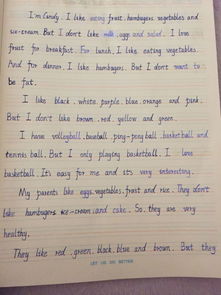 I'm Candy. I like eating fruit, hambugers vegetables and
ice-cream. But I don't like milk, eggs and salad. I love
fruit for breakfast. For lunch, I like eating vegetables.
And for dinner, I like hambugers. But I don't want to
be fat.
I like black, white, purple, blue, orange and pink.
But I don't like brown, red, yellow and green.
I have volleyball, baseball ping-pong ball, basketball and
tennis ball. But I only playing basketball. I love
basketball. It's easy for me and it's very interesting.
My parents like eggs, vegetables, fruit and rice. They don't
like hambugers ice-cream and cake. So, they are very
healthy.
They like red, green, black, blue and brown. But they